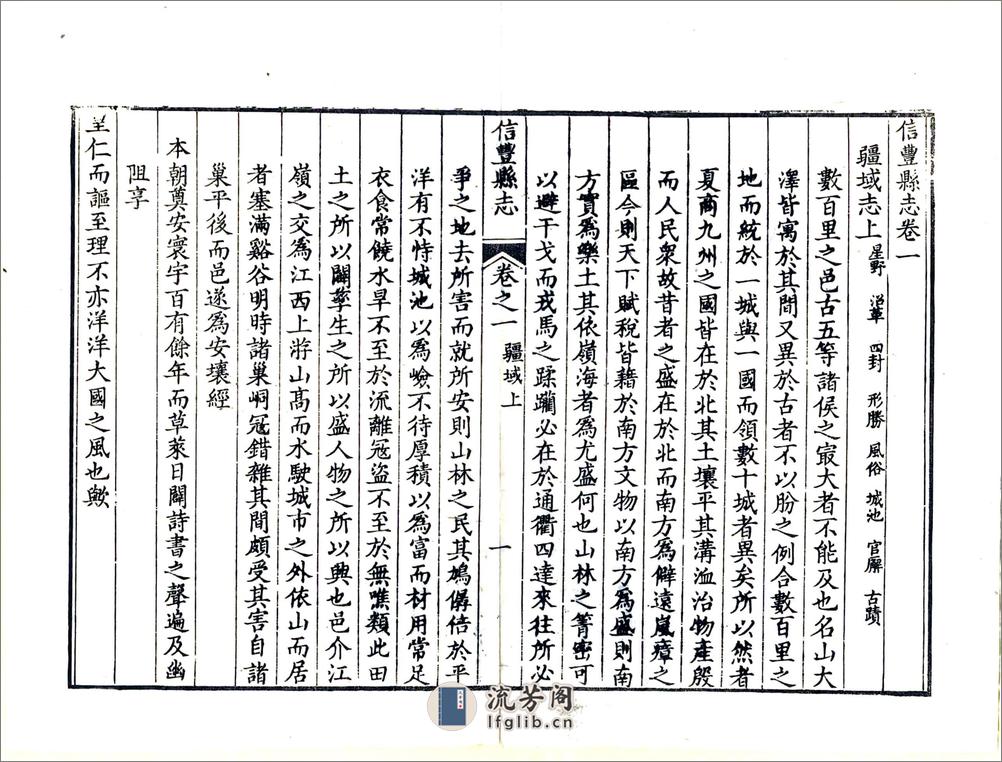 信豐縣志卷一
疆域志上 星野 沿革 四封 形勝 風俗 城池 官廨 古蹟
數百里之邑古五等諸侯之最大者不能及也名山大
澤皆寓於其間又異於古者不以朌之例合數百里之
地而統於一城與一國而領數十城者異矣所以然者
夏商九州之國皆在於北其土壤平其溝洫治物產殷
而人民衆故昔者之盛在於北而南方爲僻遠嵐瘴之
區今則天下賦稅皆藉於南方文物以南方爲盛則南
方實爲樂土其依嶺海者爲尤盛何也山林之菁密可
以避干戈而戎馬之蹂躪必在於通衢四達來往所必
信豐縣志 卷之一 疆域上 一
爭之地去所害而就所安則山林之民其鳩僝倍於平
洋有不恃城池以爲嶮不待厚積以爲富而材用常足
衣食常饒水旱不至於流離寇盜不至於無噍類此田
土之所以闢孳生之所以盛人物之所以興也邑介江
嶺之交爲江西上游山高而水駛城市之外依山而居
者塞滿谿谷明時諸巢峒寇錯雜其間頗受其害自諸
巢平後而邑遂爲安壤經
本朝奠安寰宇百有餘年而草萊日闢詩書之聲遍及幽
阻享
至仁而謳至理不亦洋洋大國之風也歟
流芳阁
lfglib.cn